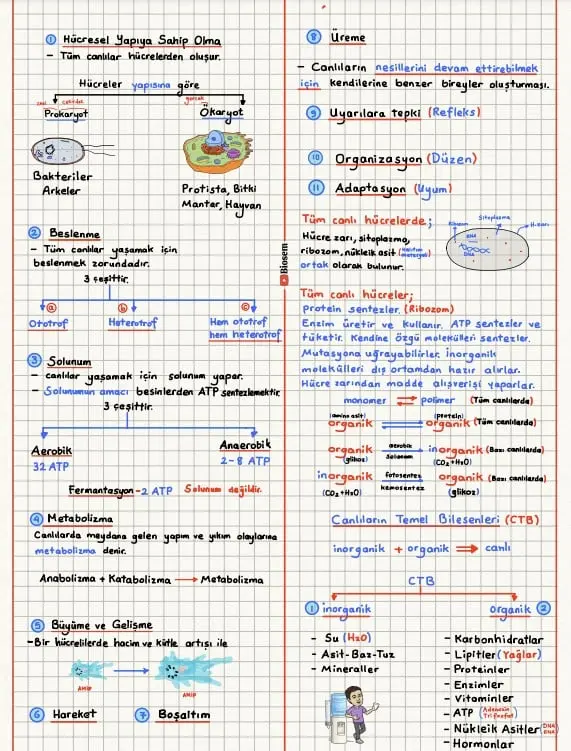 ① Hücresel Yapıya Sahip Olma
- Tüm canlılar hücrelerden oluşur.
Hücreler yapısına göre
çekirdek
gerçek
Prokaryot
Ökaryot
Bakteriler
Arkeler
Protista, Bitki
Mantar, Hayvan
② Beslenme
- Tüm canlılar yaşamak için
beslenmek zorundadır.
3 çeşittir.
a b c
Ototrof
Heterotrof
Hem ototrof
hem heterotrof
③ Solunum
- canlılar yaşamak için solunum yapar.
- Solunumun amacı besinlerden ATP sentezlemektir.
3 çeşittir.
Aerobik
32 ATP
Anaerobik
2-8 ATP
Fermantasyon-2 ATP Solunum değildir.
④ Metabolizma
Canlılarda meydana gelen yapım ve yıkım olaylarına
metabolizma denir.
Anabolizma + Katabolizma → Metabolizma
⑤ Büyüme ve Gelişme
-Bir hücrelilerde hacim ve kütle artışı ile
AMİP
AMİP
⑥ Hareket ⑦ Boşaltım
Biosem
⑧ Üreme
- Canlıların nesillerini devam ettirebilmek
için kendilerine benzer bireyler oluşturması.
⑨ Uyarılara tepki (Refleks)
⑩ Organizasyon (Düzen)
⑪ Adaptasyon (Uyum)
Tüm canlı hücrelerde;
Hücre zarı, sitoplazma,
ribozom, nükleik asit (kalıtım materyali)
ortak olarak bulunur.
Ribozom
Sitoplazma
H.zarı
RNA
DNA
Tüm canlı hücreler;
Protein sentezler. (Ribozom)
Enzim üretir ve kullanır. ATP sentezler ve
tüketir. Kendine özgü molekülleri sentezler.
Mutasyona uğrayabilirler. İnorganik
molekülleri dış ortamdan hazır alırlar.
Hücre zarından madde alışverişi yaparlar.
monomer ⇌ polimer (Tüm canlılarda)
(amino asit) (protein)
organik ⇌ organik (Tüm canlılarda)
organik aerobik solunum inorganik (Bazı canlılarda)
(glikoz) (CO2+H2O)
inorganik fotosentez kemosentez organik (Bazı canlılarda)
(CO2+H2O) (glikoz)
Canlıların Temel Bilesenleri (CTB)
inorganik + organik ⇒ canlı
CTB
① inorganik
organik ②
- Su (H2O)
- Asit-Baz-Tuz
- Mineraller
- Karbonhidratlar
- Lipitler (Yağlar)
- Proteinler
- Enzimler
- Vitaminler
- ATP (Adenozin Trifosfat)
- Nükleik Asitler (DNA RNA)
- Hormonlar